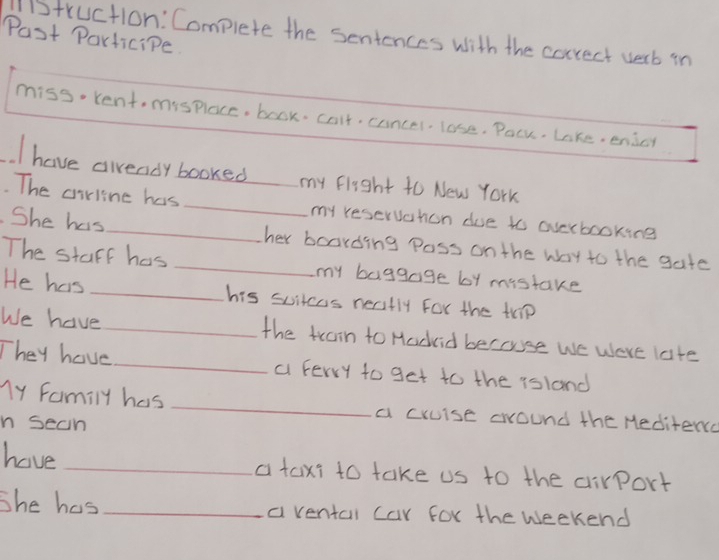 Instruction: Complete the sentences with the correct verb in
Past Participe.
miss • rent • misplace • book • call • cancel • lose • Pack • take • enjoy
I have already booked my flight to New York
The airline has my reservation due to overbooking
She has her boarding Pass on the way to the gate
The staff has my baggage by mistake
He has his suitcas neatly for the trip
We have the train to Madrid because we were late
They have a ferry to get to the island
My Family has a cruise around the Mediterra
n sean
have a taxi to take us to the airPort
She has a rental car for the weekend